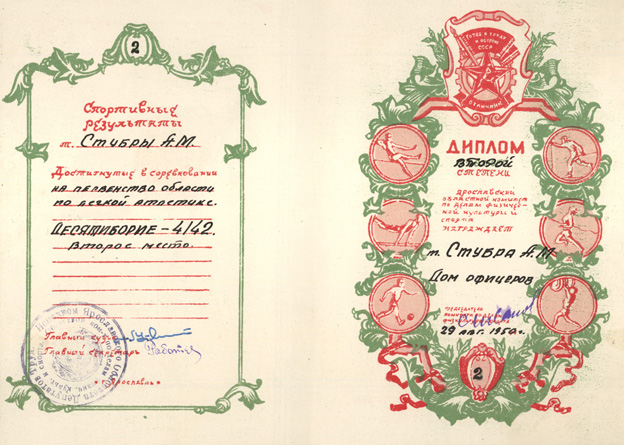 2
Спортивные
результаты
т. Стубры А.М.
Достигнутые в соревновании
на первенство области
по легкой атлетике.
Десятиборие – 4142.
Второе место.
Главный судья
Главный секретарь
г. Ярославль
Готов к труду
и обороне
СССР
Отличник
ДИПЛОМ
Второй
степени
Ярославский
областной комитет
по делам физичес-
кой культуры и
спорта
награждает
т. Стубра А.М
Дом офицеров
Председатель
29 авг. 1950г.
2